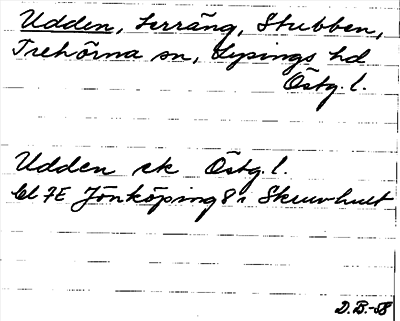 Udden, terräng, Stubben,
Trehörna sn, Lysings hd
Östg. l.
Udden ek Östg. l.
bl 7E Jönköping 8i Skruvhult
D.B.-58